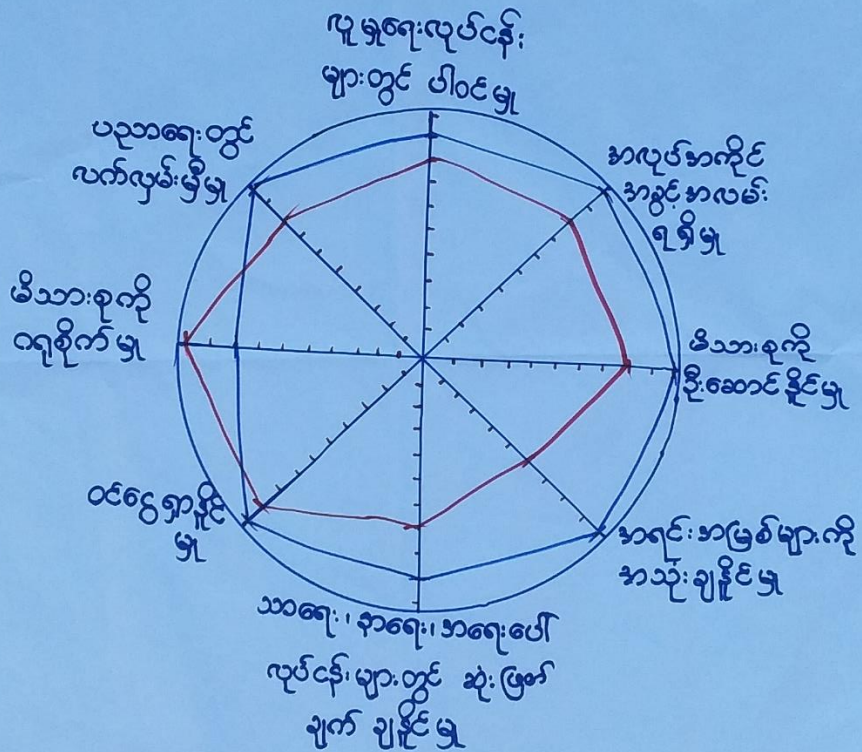 လူမှုရေးလုပ်ငန်း
များတွင် ပါဝင်မှု
အလုပ်အကိုင်
အခွင့်အလမ်း
ရရှိမှု
မိသားစုကို
ဦးဆောင်နိုင်မှု
အရင်းအမြစ်များကို
အသုံးချနိုင်မှု
သာရေး၊ နာရေး၊ အရေးပေါ်
လုပ်ငန်းများတွင် ဆုံးဖြတ်
ချက် ချနိုင်မှု
ဝင်ငွေရှာနိုင်
မှု
မိသားစုကို
ဂရုစိုက်မှု
ပညာရေးတွင်
လက်လှမ်းမှီမှု